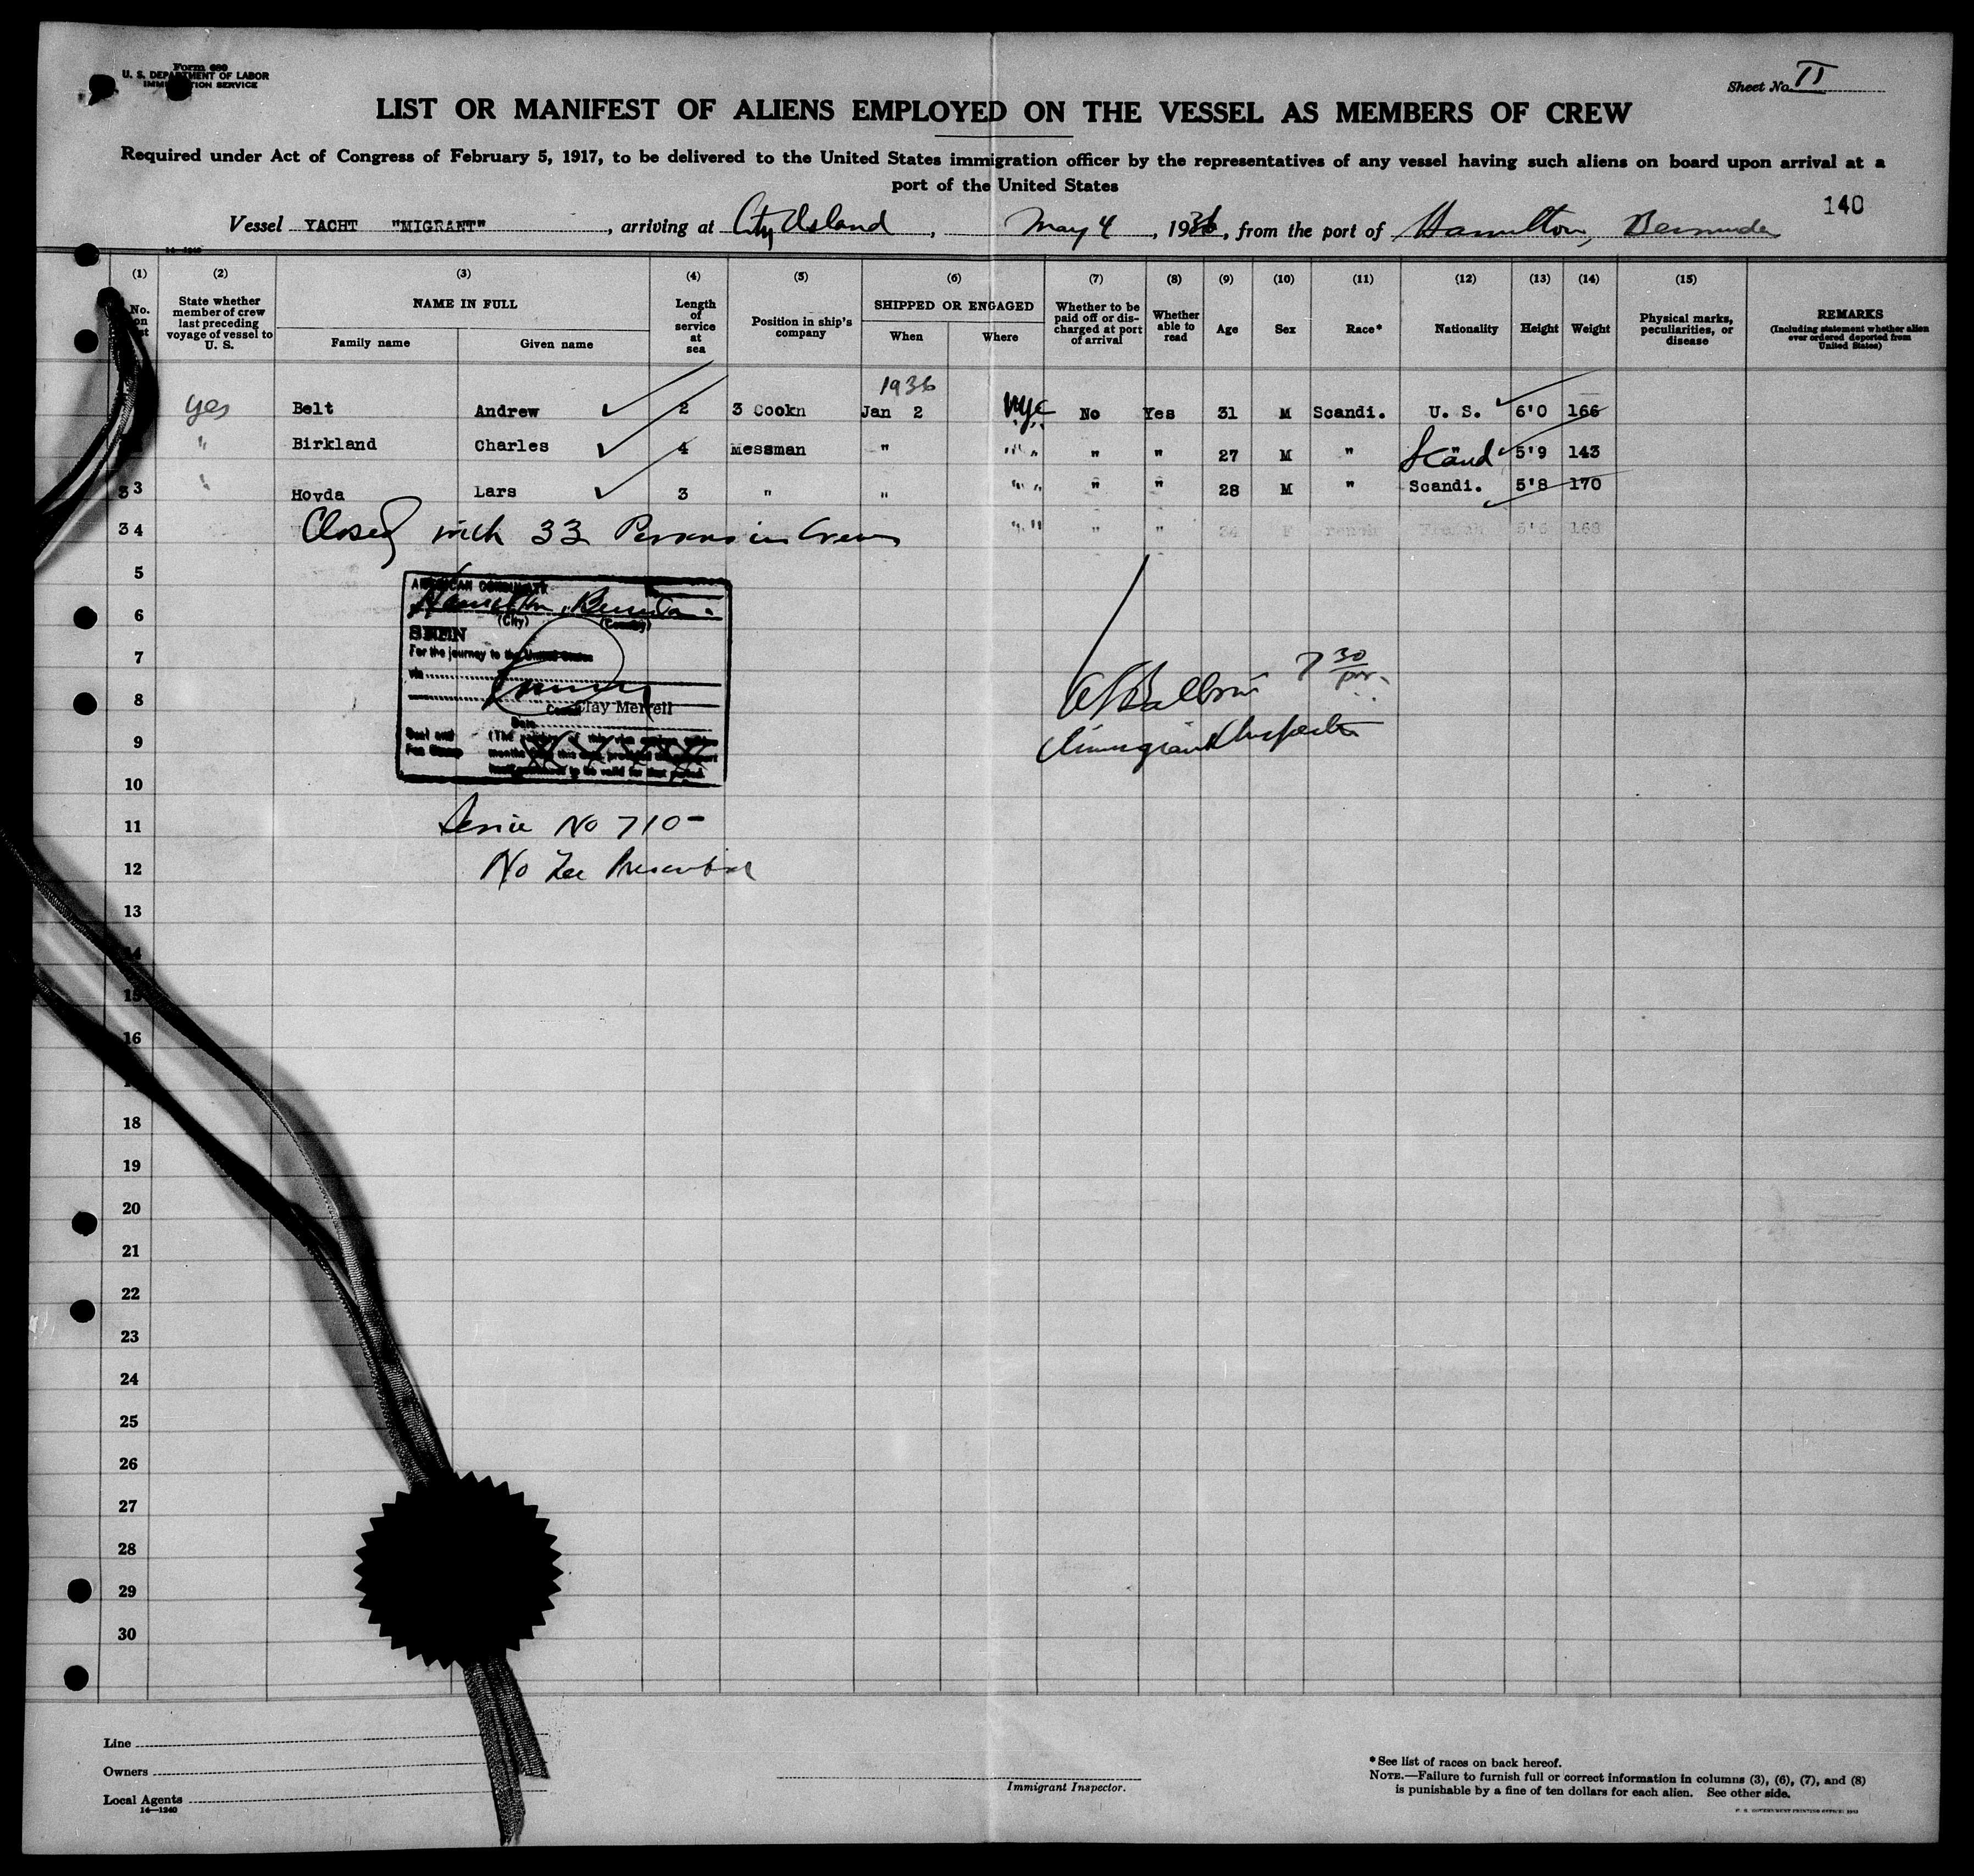 Form 680
U. S. DEPARTMENT OF LABOR
IMMIGRATION SERVICE
Sheet No. II
LIST OR MANIFEST OF ALIENS EMPLOYED ON THE VESSEL AS MEMBERS OF CREW
Required under Act of Congress of February 5, 1917, to be delivered to the United States immigration officer by the representatives of any vessel having such aliens on board upon arrival at a
port of the United States
140
Vessel YACHT "MIGRANT", arriving at City Island, May 4, 1936, from the port of Hamilton, Bermuda
14-1240
(1) (2) (3) (4) (5) (6) (7) (8) (9) (10) (11) (12) (13) (14) (15)
No. on list
State whether member of crew last preceding voyage of vessel to U. S.
NAME IN FULL
Family name Given name
Length of service at sea
Position in ship's company
SHIPPED OR ENGAGED
When Where
Whether to be paid off or discharged at port of arrival
Whether able to read
Age
Sex
Race*
Nationality
Height
Weight
Physical marks, peculiarities, or disease
REMARKS
(Including statement whether alien ever ordered deported from United States)
1936
yes Belt Andrew 2 3 Cookn Jan 2 NYC No Yes 31 M Scandi. U. S. 6'0 166
" Birkland Charles 4 Messman " " " " " 27 M " Scand 5'9 143
33 " Hovda Lars 3 " " " " " " 28 M " Scandi. 5'8 170
34 Closed with 33 Persons in Crew " " " " 5'6 168
5
AMERICAN CONSULATE
6 Hamilton, Bermuda
(City) (Country)
SEEN
7 For the journey to the United States
via
8 Clay Merrell
Date
9 Seal and Fee Stamp
7 30 pm.
Immigrant Inspector
10
11 Service No 710-
12 No Fee Prescribed
13
14
15
16
18
19
20
21
22
23
24
25
26
27
28
29
30
Line
Owners
Local Agents
14-1240
Immigrant Inspector.
*See list of races on back hereof.
NOTE.—Failure to furnish full or correct information in columns (3), (6), (7), and (8)
is punishable by a fine of ten dollars for each alien. See other side.